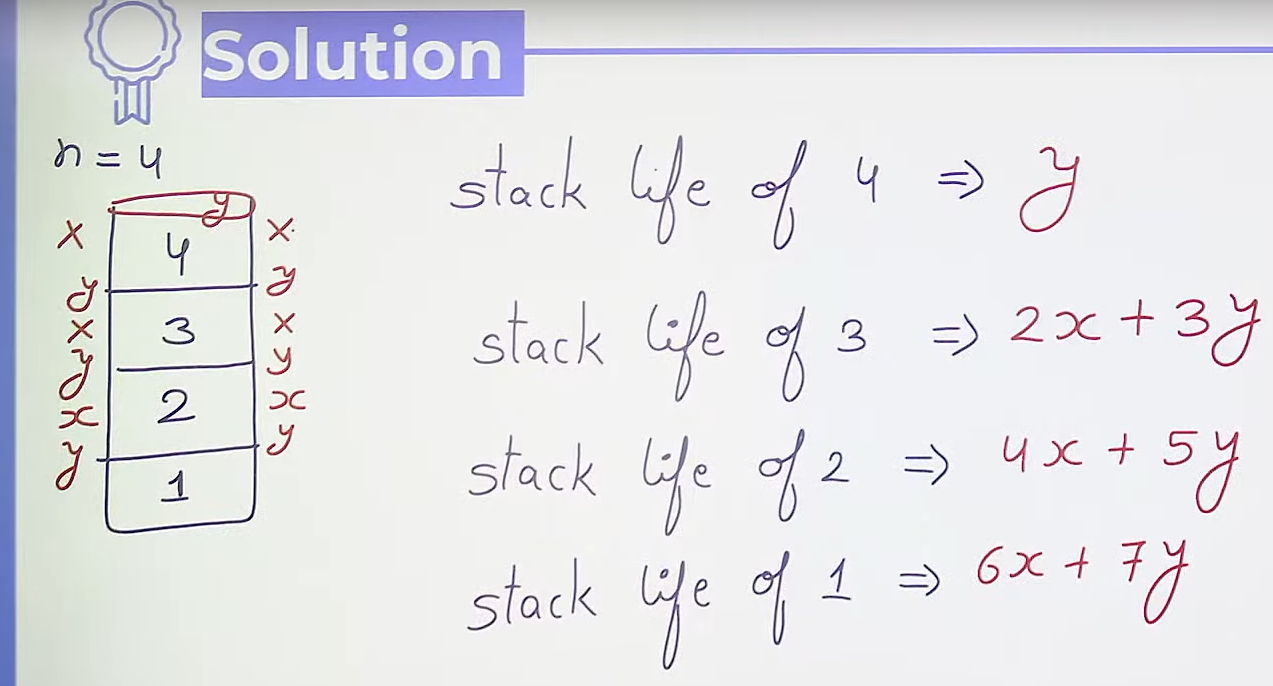 Solution
n = 4
y
x 4 x
y y
x 3 x
y y
x 2 x
y y
1
stack life of 4 => y
stack life of 3 => 2x + 3y
stack life of 2 => 4x + 5y
stack life of 1 => 6x + 7y